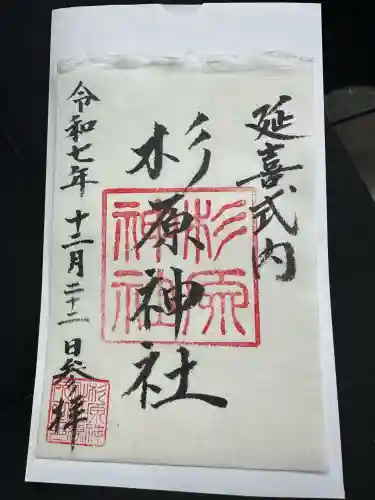 延喜式内
杉原神社
杉原神社
令和七年十二月二十二日参拝